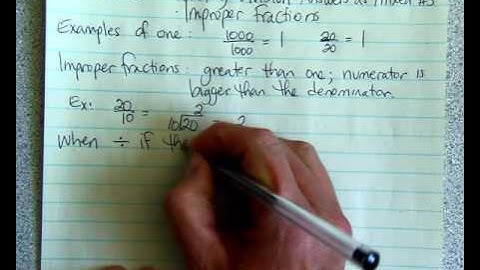 Answers as Mixed #s
Improper fractions
Examples of one: 1000/1000 = 1 20/20 = 1
Improper fractions: greater than one; numerator is
bigger than the denominator.
Ex: 20/10 = 10⟌20 2 = 2
When ÷ if the